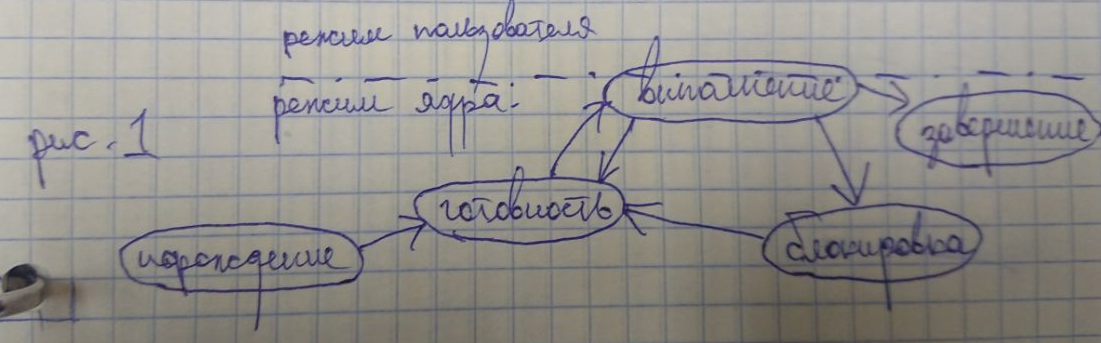 режим пользователя
режим ядра:
рис. 1
выполнение
завершение
готовность
порождение
блокировка